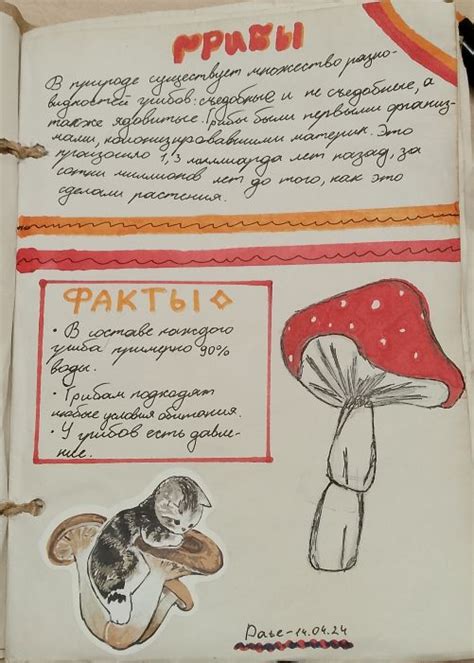 ГРИБЫ
В природе существует множество разно-
видностей грибов: съедобные и не съедобные, а
также ядовитые. Грибы были первыми организ-
мами, колонизировавшими материк. Это
произошло 1,3 миллиарда лет назад, за
сотни миллионов лет до того, как это
сделали растения.
ФАКТЫ
• В составе каждого
гриба примерно 90%
воды.
• Грибам подходят
любые условия обитания.
• У грибов есть давле-
ние.
14.04.24